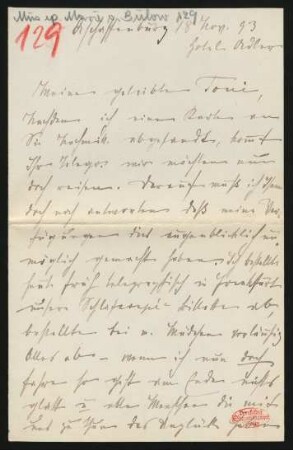 Mus. ep. Marie v. Bülow 129
129
Aschaffenburg 18 Nov. 93
Hotel Adler
Meine geliebte Toni,
Nachdem ich eine Karte an
Sie abgesandt, kommt
Ihr Telegr. wir möchten nun
doch reisen. Darauf muß ich Ihnen
doch noch antworten daß meine Ver-
fügungen dies augenblicklich un-
möglich gemacht haben. Ich bestellte
heute früh telegraphisch in Frankfurt
unsere Schlafcoupé-Billets ab,
bestellte bei m. Mädchen vorläufig
Alles ab – wenn ich nun doch
fahre so geht am Ende nichts
glatt u. alle Menschen die mir